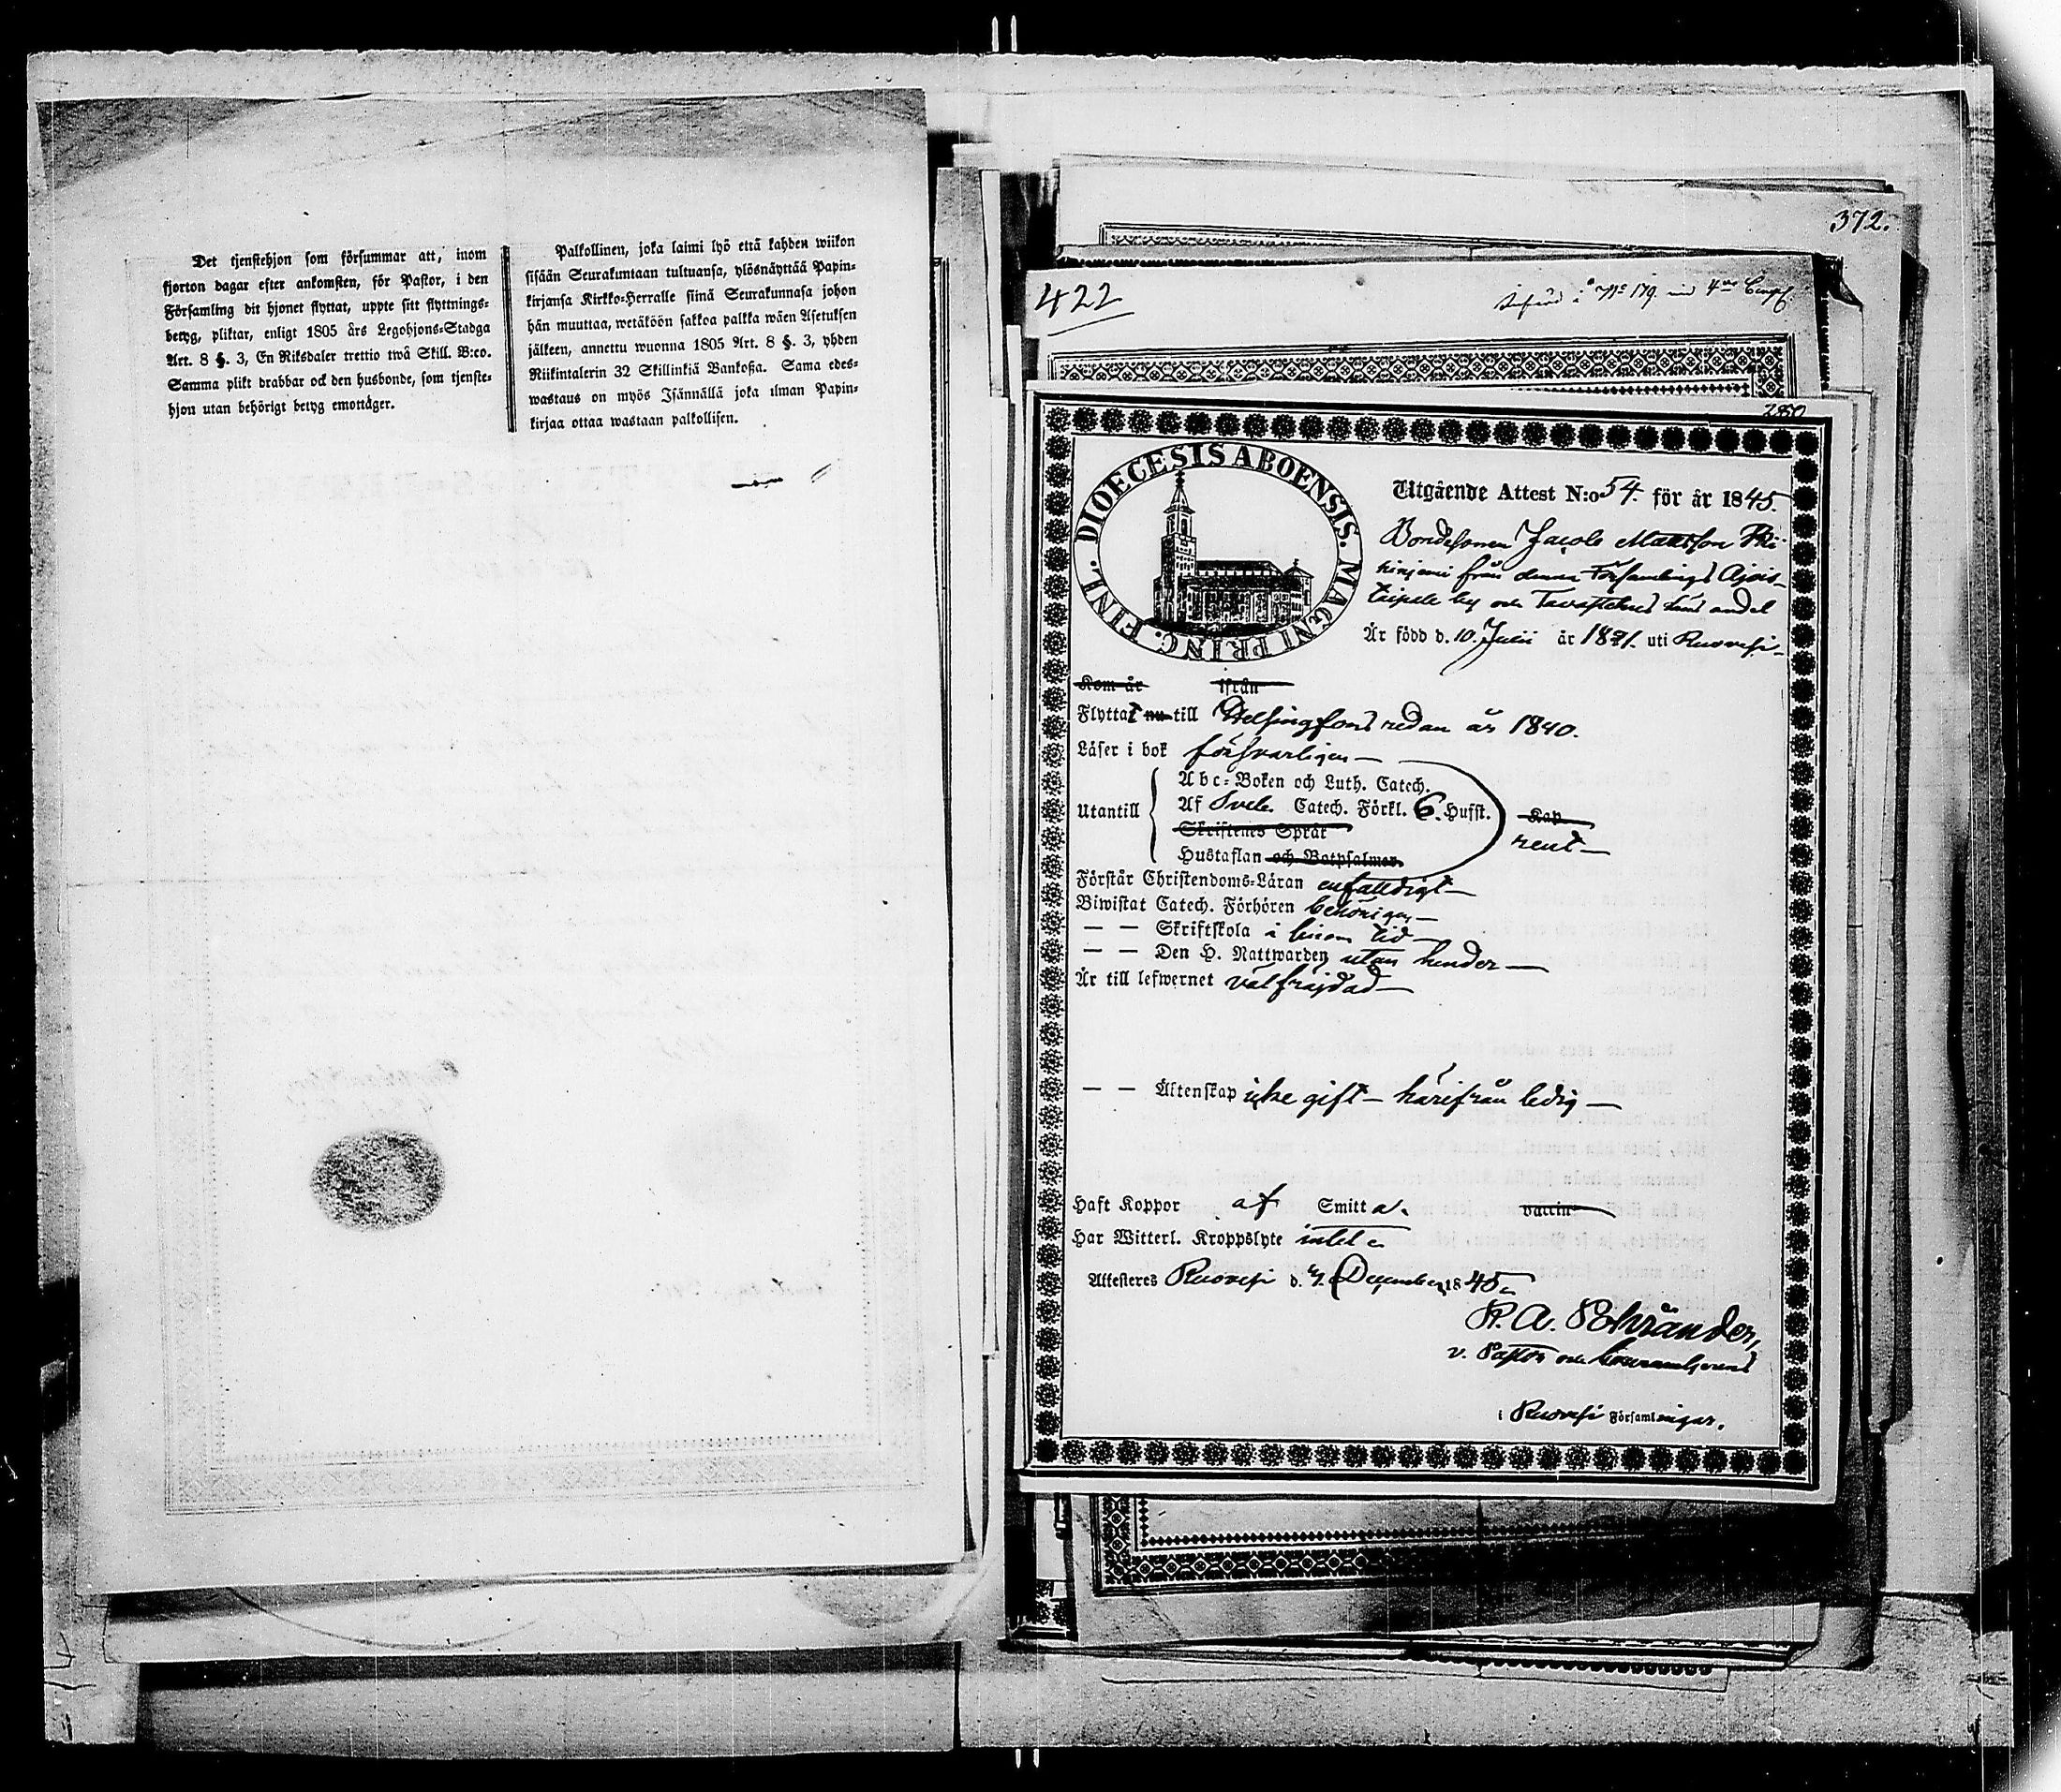 Det tjenstehjon som försummar att, inom
fjorton dagar efter ankomsten, för Pastor, i den
Församling dit hjonet flyttat, uppte sitt flyttnings-
betyg, pliktar, enligt 1805 års Legohjons-Stadga
Art. 8 §. 3, En Riksdaler trettio twå Skill. B:co.
Samma plikt drabbar ock den husbonde, som tjenste-
hjon utan behörigt betyg emottager.
Palkollinen, joka laimi lyö että kahden wiikon
sisään Seurakuntaan tultuansa, ylösnäyttää Papin-
kirjansa Kirkko-Herralle siinä Seurakunnasa johon
hän muuttaa, wetäköön sakkoa palkka wäen Asetuksen
jälkeen, annettu wuonna 1805 Art. 8 §. 3, yhden
Riikintalerin 32 Skillinkiä Bankoßa. Sama edes-
wastaus on myös Isännällä joka ilman Papin-
kirjaa ottaa wastaan palkollisen.
372.
422
280
DIOECESIS ABOENSIS. MAGNI PRINC. FINL.
Utgående Attest N:o 54. för år 1845.
Bondesonen Jacob Mattsson
från denna Församlings
by och Tavastehus läns andel
Är född d. 10. Julii år 1821. uti Ruovesi
Kom år ifrån
Flyttat nu till Helsingfors redan år 1840.
Läser i bok försvarligen
Abc-Boken och Luth. Catech.
Utantill Af Sveb. Catech. Förkl. 6. Hufst. Kap
Skriftenes Språk rent
Hustaflan och Botpsalmer.
Förstår Christendoms-Läran enfaldigt
Biwistat Catech. Förhören behörigen
— — Skriftskola i sinom tid
— — Den H. Nattwarden utan hinder
Är till lefwernet välfräjdad
— — Äktenskap icke gift — härifrån ledig
Haft Koppor af Smitta. vaccin
Har Witterl. Kroppslyte intet
Attesteres Ruovesi d. December 1845
v. Pastor och
i Ruovesi Församlingar.